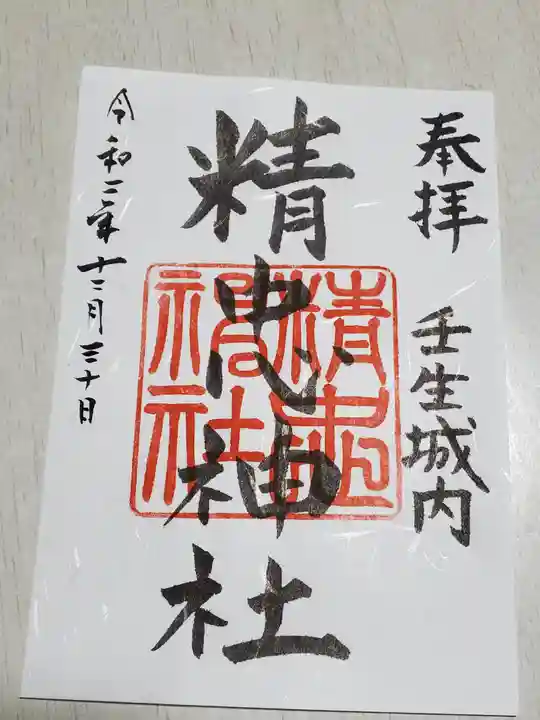 奉拝 壬生城内
精忠神社
令和二年十二月三十日